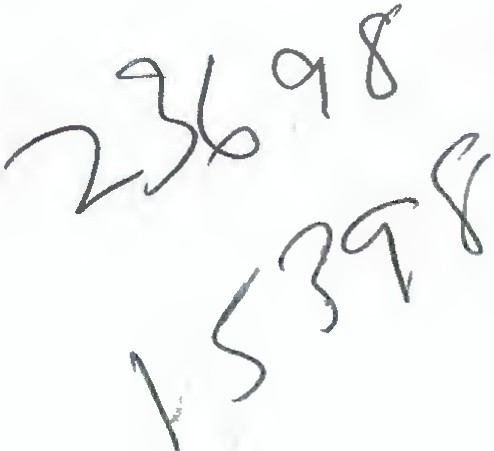 23698
15398